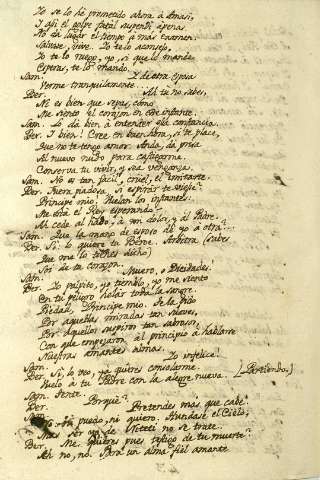 Yo se lo hé prometido ahora á Amasi,
Y assi el golpe fatal suspendi apenas
No dá lugar el tiempo á más examen.
Salvese, vive. Yo te lo aconsejo,
Yo te lo ruego, yo, si que lo mande
Esperas, te lo mando.
Sam. Y de otra esposa
Porme tranquilamente.
Ber. Ah tu no sabes,
Ni es bien que sepas, cómo
Me siento el corazon en este instante.
Sam. Lo dá bien á entender esa constancia.
Ber. Y bien! Cree en buen hora, si te place,
Que no te tengo amor. Anda, dá prisa
Al nuevo nudo para castigarme.
Conserva tu vivir, y sea venganza.
Sam. No es tan facil, cruel, el imitarte.
Ber. Fuera piadosa, si espirár te viese?
Principe mio! Vuelan los infantes.
Me está el Rey esperando.
Al cede al hado, á mi dolor, y al Padre.
Sam. Que la mano de esposo dé yo á otra?
Ber. Si: lo quiere tu Berne. (Sabes
Que me lo tienes dicho)
Soi de tu corazon.
Sam. Muero, o Deidades!
Ber. Yo palpito, yo tiemblo, yo me siento
En tu peligro helár toda la sangre.
Piedad, Principe mio. Te la pido
Por aquellas miradas tan suaves,
Por aquellos suspiros tan sabrosos,
Con que empezaron al principio á hablarse
Nuestras amantes almas.
Sam. Yo infelice!
Ber. Si, lo veo, ya quieres consolarme.
Vuelo á tu Padre con la alegre nueva. [Partiendo.]
Sam. Tente.
Ber. Porqué?
Sam. Pretendes más que cabe.
No puedo, ni quiero. Hundase el Cielo,
Mas Ser yo de Niteti no se trate.
Ber. Me quieres pues testigo de tu muerte?
Ah no, no. Para un alma fiel amante